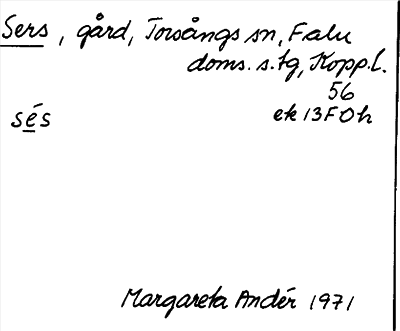 Sers, gård, Torsångs sn, Falu
doms. s. tg, Kopp. l.
56
sés ek 13F0h
Margareta Andér 1971